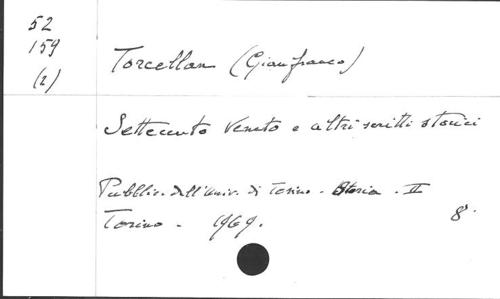 52
159
(2)
Torcellan (Gianfranco)
Settecento Veneto e altri scritti storici
Pubblic. dell'univ. di Torino - Storia - II
Torino - 1969.
8°.